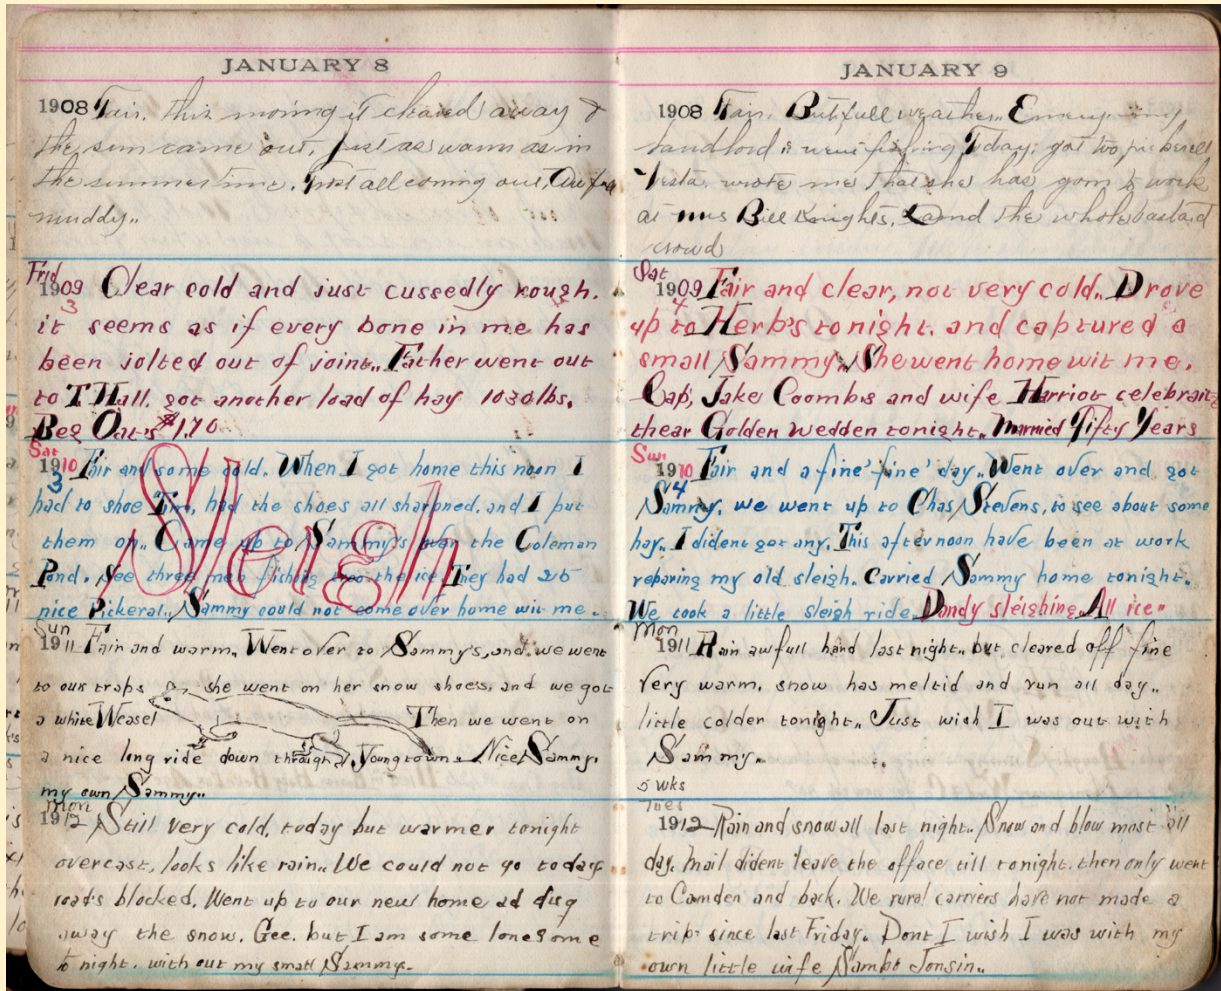 JANUARY 8
1908 Fair. this morning it cleared away &
the sun came out. just as warm as in
the summer time. frost all coming out,
muddy..
Frid
1909 Clear cold and just cussedly rough.
3
it seems as if every bone in me has
been jolted out of joint.. Father went out
to T. Hall. got another load of hay 1030 lbs.
Beg Oat's $1.70
Sat
1910 Fair and some cold. When I got home this noon I
3
had to shoe Tim, had the shoes all sharpned, and I put
them on.. Came up to Sammy's over the Coleman
Pond. See three men fishing the ice. They had 25
nice Pickeral.. Sammy could not come over home wit me.
Sleigh
Sun
1911 Fair and warm.. Went over to Sammy's, and we went
to our traps she went on her snow shoe's, and we got
a white Weasel Then we went on
a nice long ride down through Youngtown. Nice Sammy.
my own Sammy..
Mon
1912 Still very cold, today but warmer tonight
overcast, looks like rain.. We could not go today
road's blocked. Went up to our new home ad dug
away the snow. Gee. but I am some lonesome
to night. with out my small Sammy.
JANUARY 9
1908 Fair. Butifull weather..
landlord went fishing Today. got two pickerell
Vesta. wrote me that she has gorn to work
at mrs Bill Knights, and the whole bastard
crowd
Sat
1909 Fair and clear, not very cold.. Drove
4
up to Herb's tonight. and captured a
small Sammy. She went home wit me.
Cap, Jake Coombs and wife Harriot celebrait
thear Golden wedden tonight.. Married Fifty Years
Sun
1910 Fair and a fine' fine' day.. Went over and got
4
Sammy. we went up to Chas Stevens, to see about some
hay.. I dident got any. This afternoon have been at work
reparing my old sleigh. Carried Sammy home tonight.
We took a little sleigh ride. Dandy sleighing.. All ice"
Mon
1911 Rain awfull hard last night.. but cleared off fine
Very warm. snow has meltid and run all day..
little colder tonight.. Just wish I was out with
Sammy..
5 wks
Tues
1912 Rain and snow all last night.. Snow and blow most all
day. Mail dident leave the offace till tonight. then only went
to Camden and back. We rural carriers have not made a
trip: since last Friday. Dont I wish I was with my
own little wife Sambo Jonsin..